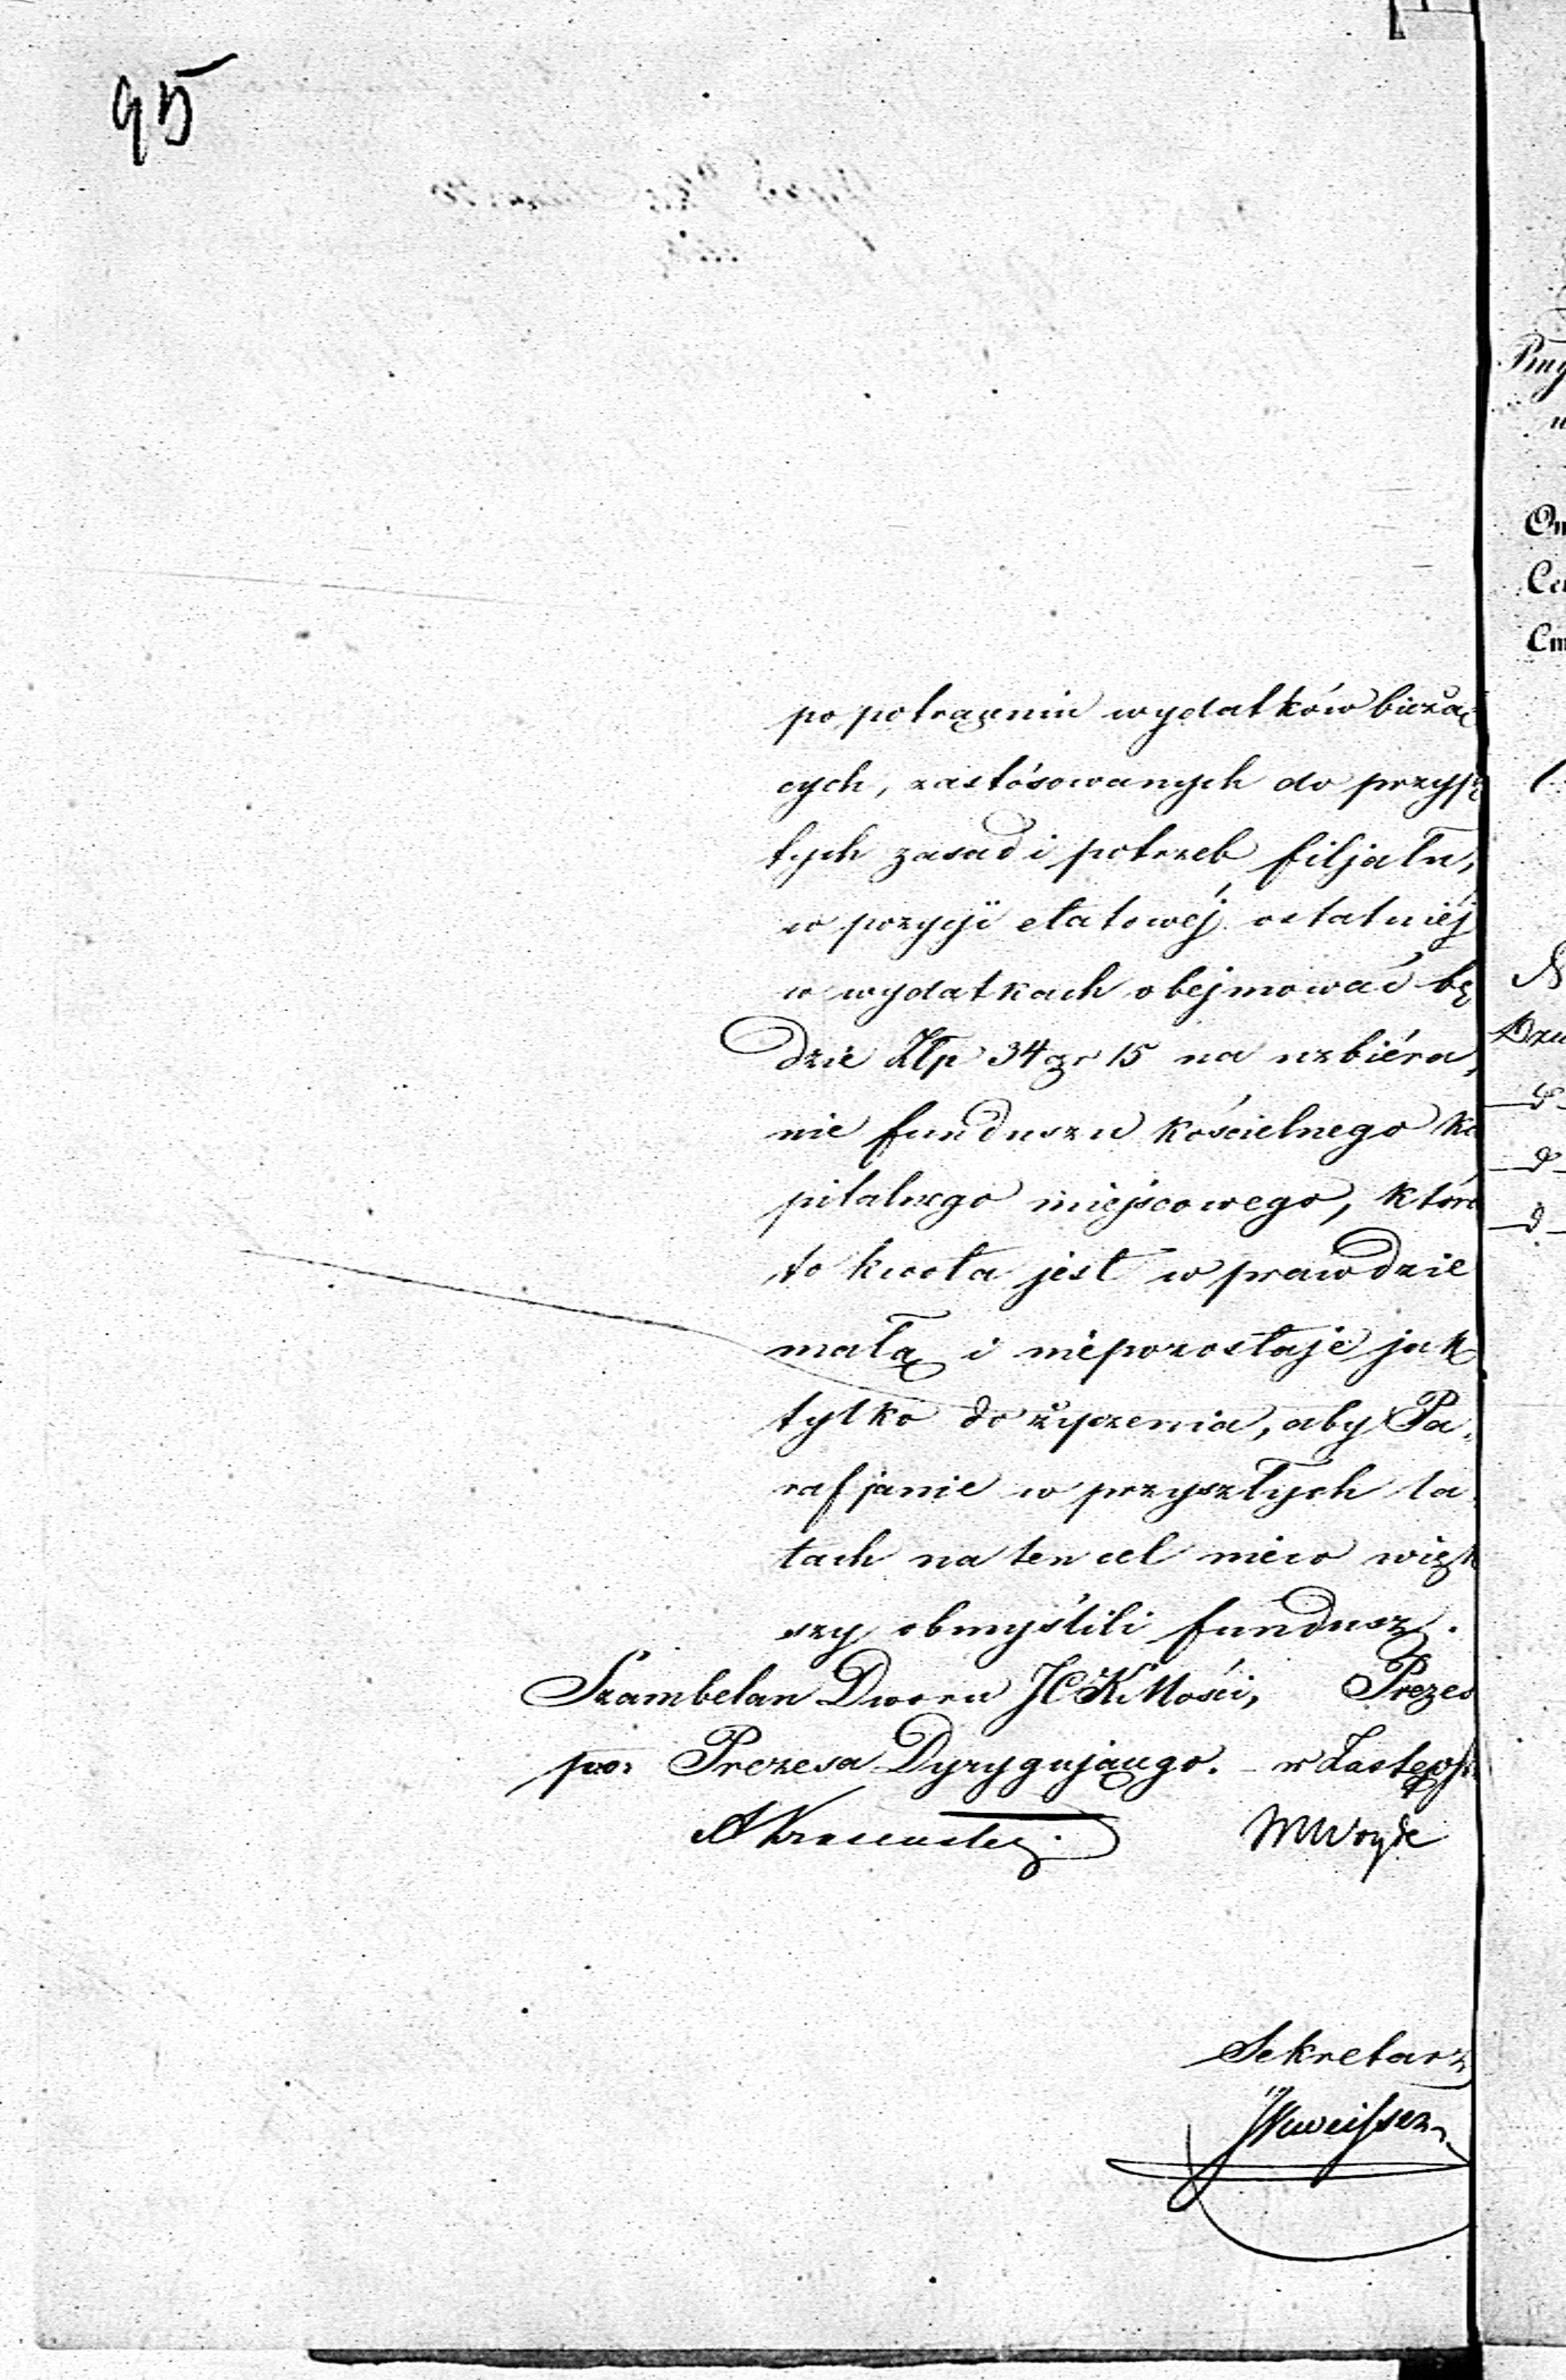 95
po potrąceniu wydatków bieżą-
cych, zastósowanych do przyję
tych zasad i potrzeb filjału,
w pozycji etatowéj ostatniéj
w wydatkach obejmować bę
dzie Złp 34 gr 15 na uzbiéra-
nie funduszu kościelnego ka
pitalnego miejscowego, która
to kwota jest w prawdzie
małą i niepozostaje jak
tylko do życzenia, aby Pa-
rafjanie w przyszłych la-
tach na ten cel nieco więk
szy obmyślili fundusz.
Szambelan Dworu JCKMości, Prezes
po: Prezesa Dyrygującego. w Zastęps
MWoyde
Sekretarz